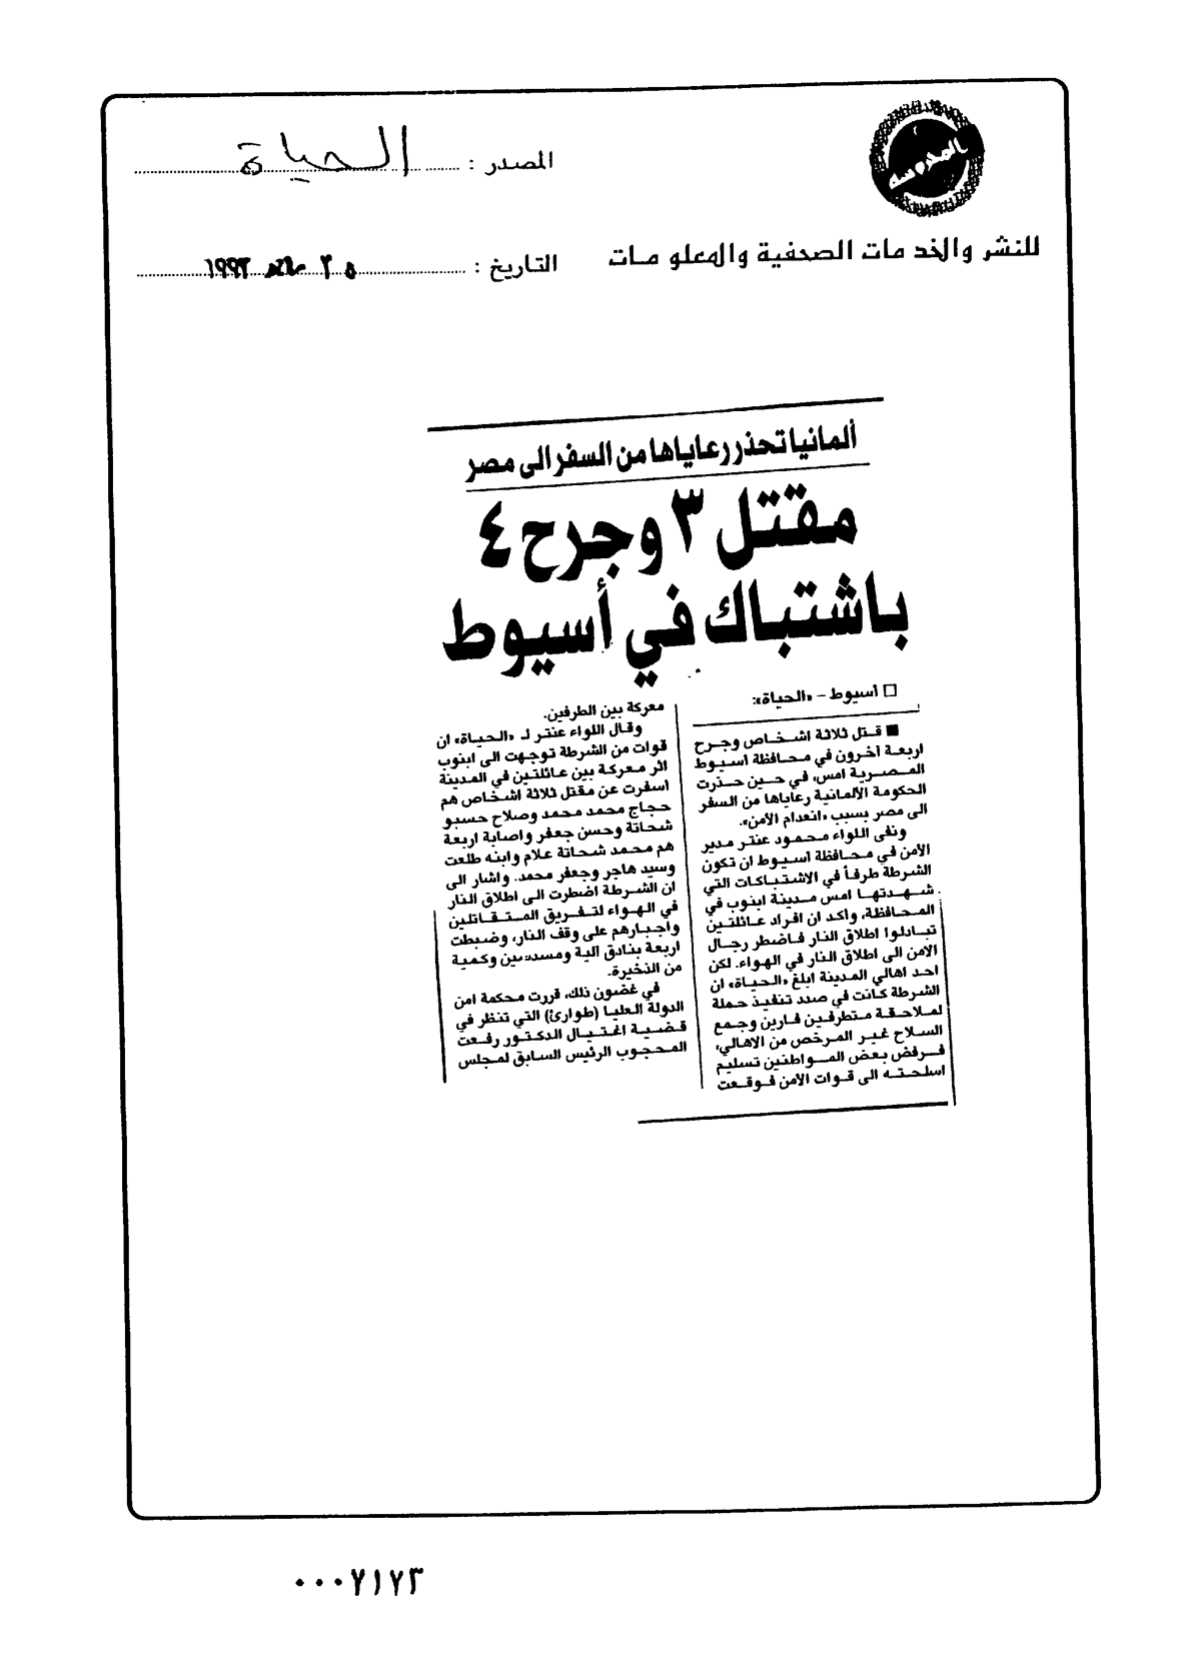 المحروسة
للنشر والخدمات الصحفية والمعلومات
المصدر : الحياة
التاريخ : ١٩٩٣
ألمانيا تحذر رعاياها من السفر الى مصر
مقتل ٣ وجرح ٤
باشتباك في أسيوط
□ أسيوط – «الحياة»:
■ قتل ثلاثة اشخاص وجرح
اربعة آخرون في محافظة اسيوط
المصرية امس، في حين حذرت
الحكومة الألمانية رعاياها من السفر
الى مصر بسبب «انعدام الأمن».
ونفى اللواء محمود عنتر مدير
الأمن في محافظة اسيوط ان تكون
الشرطة طرفاً في الاشتباكات التي
شهدتها امس مدينة ابنوب في
المحافظة، واكد ان افراد عائلتين
تبادلوا اطلاق النار فاضطر رجال
الامن الى اطلاق النار في الهواء. لكن
احد اهالي المدينة ابلغ «الحياة» ان
الشرطة كانت في صدد تنفيذ حملة
لملاحقة متطرفين فارين وجمع
السلاح غير المرخص من الاهالي،
فرفض بعض المواطنين تسليم
اسلحته الى قوات الأمن فوقعت
معركة بين الطرفين.
وقال اللواء عنتر لـ «الحياة» ان
قوات من الشرطة توجهت الى ابنوب
اثر معركة بين عائلتين في المدينة
اسفرت عن مقتل ثلاثة اشخاص هم
حجاج محمد محمد وصلاح حسبو
شحاتة وحسن جعفر واصابة اربعة
هم محمد شحاتة علام وابنه طلعت
وسيد هاجر وجعفر محمد. واشار الى
ان الشرطة اضطرت الى اطلاق النار
في الهواء لتفريق المتقاتلين
واجبارهم على وقف النار، وضبطت
اربعة بنادق آلية ومسدسين وكمية
من الذخيرة.
في غضون ذلك، قررت محكمة امن
الدولة العليا (طوارئ) التي تنظر في
قضية اغتيال الدكتور رفعت
المحجوب الرئيس السابق لمجلس
٠٠٠٧١٧٣